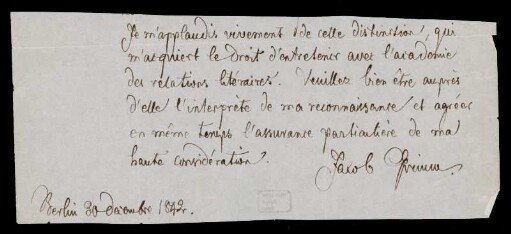 Je m'applaudis vivement de cette distinction, qui
m'acquiert le droit d'entretenir avec l'académie
des relations litéraires. Veuillez bien être auprès
d'elle l'interprete de ma reconnaissance et agréer
en même temps l'assurance particulière de ma
haute considération.
Jacob Grimm.
Berlin 30 decembre 1842.